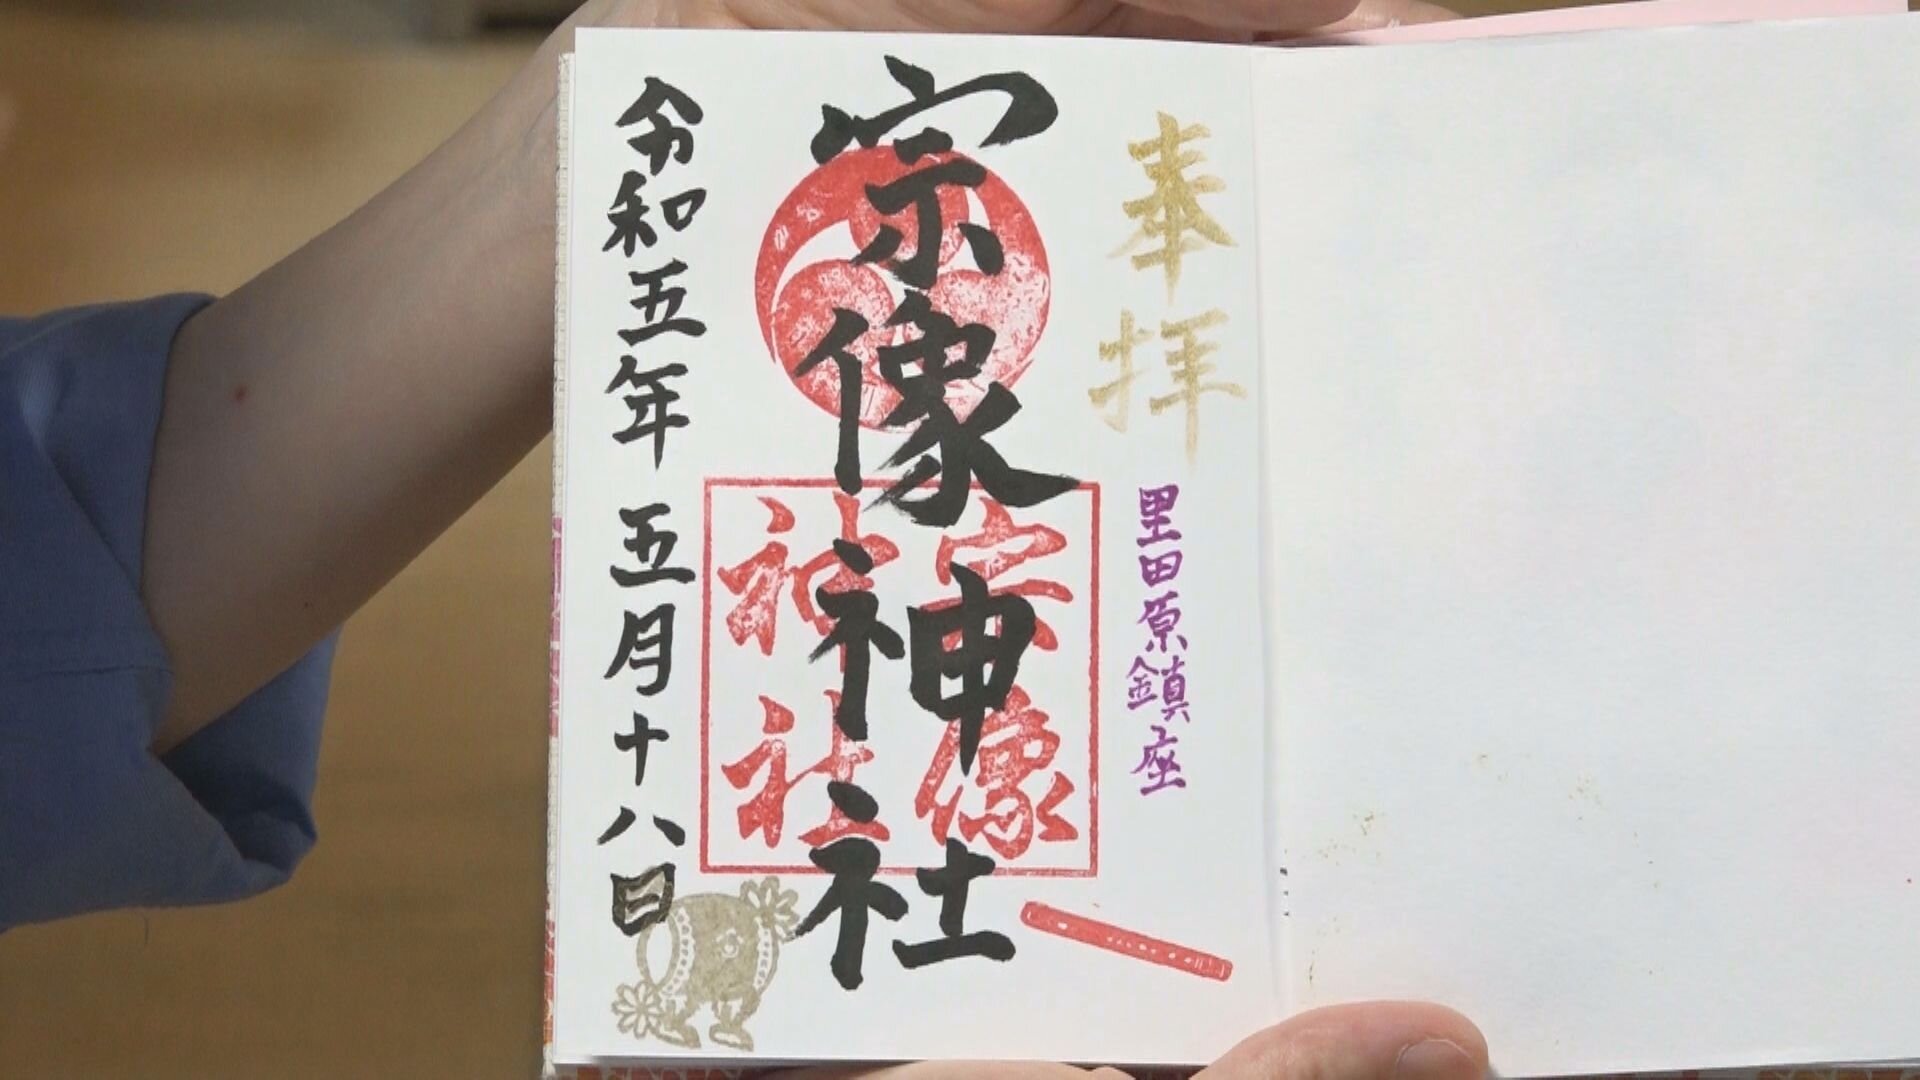 奉拝
里田原鎮座
宗像神社
宗像
神社
令和五年五月十八日